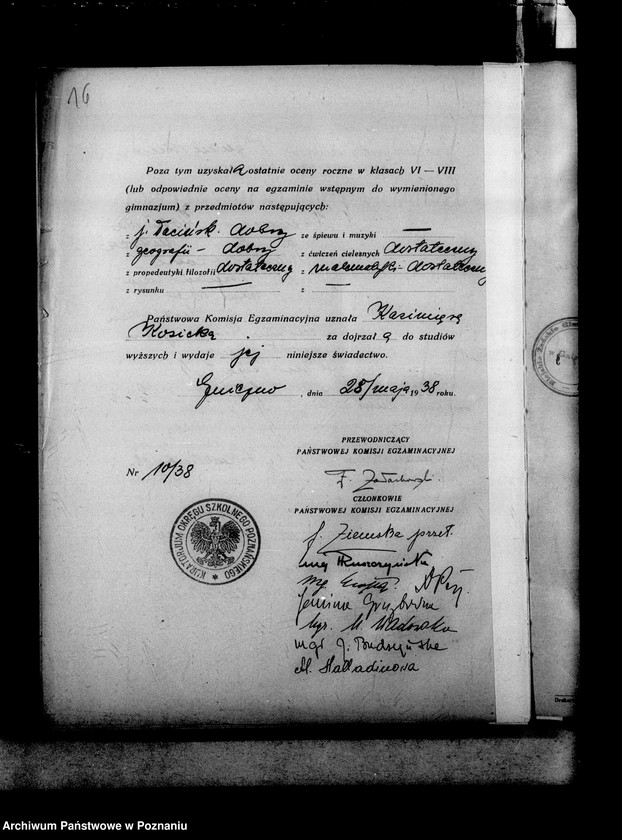 16
Poza tym uzyskała ostatnie oceny roczne w klasach VI — VIII
(lub odpowiednie oceny na egzaminie wstępnym do wymienionego
gimnazjum) z przedmiotów następujących:
z j. łacińsk. dobry ze śpiewu i muzyki —
z geografii – dobry z ćwiczeń cielesnych dostateczny
z propedeutyki filozofii dostateczny z matematyki – dostateczny
z rysunku — z —
Państwowa Komisja Egzaminacyjna uznała Kazimierę
Kosicką za dojrzałą do studiów
wyższych i wydaje jej niniejsze świadectwo.
Gniezno, dnia 28/maja 1938 roku.
PRZEWODNICZĄCY
PAŃSTWOWEJ KOMISJI EGZAMINACYJNEJ
Nr 10/38
F.
CZŁONKOWIE
PAŃSTWOWEJ KOMISJI EGZAMINACYJNEJ
KURATORJUM OKRĘGU SZKOLNEGO POZNAŃSKIEGO
J. Ziemska przeł.
mgr
Janina
Mgr. M.
mgr J.
M.
Archiwum Państwowe w Poznaniu